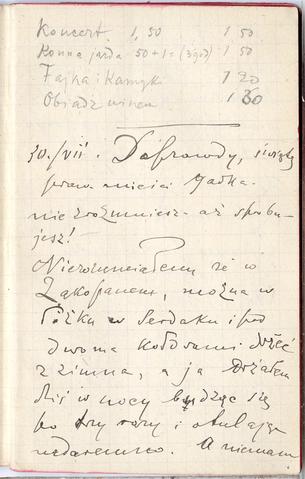 Koncert 1,50 1 50
Konna jazda 50+1 = (3 god) 1 50
Fajka i Kamyk 1 20
Obiad z winem 1 60
30./VII. Doprawdy,
nie zrozumiesz aż spróbu-
jesz!
Nierozumiałem że w
Zakopanem, można w
łóżku w serdaku i pod
dwoma kołdrami drżeć
z zimna, a ja drżałem
dziś w nocy budząc się
po trzy razy i otulając
nadaremno. A niemam